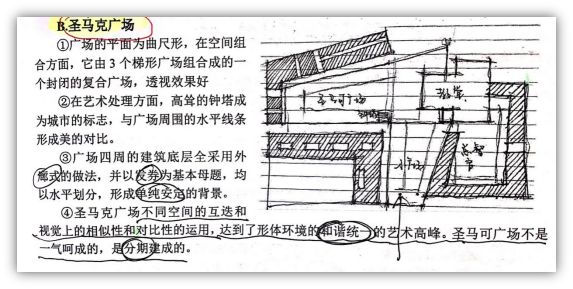 B.圣马克广场
①广场的平面为曲尺形，在空间组
合方面，它由 3 个梯形广场组合成的一
个封闭的复合广场，透视效果好
②在艺术处理方面，高耸的钟塔成
为城市的标志，与广场周围的水平线条
形成美的对比。
③广场四周的建筑底层全采用外
廊式的做法，并以发券为基本母题，均
以水平划分，形成单纯安定的背景。
④圣马克广场不同空间的互迭和
视觉上的相似性和对比性的运用，达到了形体环境的和谐统一的艺术高峰。圣马可广场不是
一气呵成的，是分期建成的。
圣马可广场
钟塔
教堂
小广场
总督宫